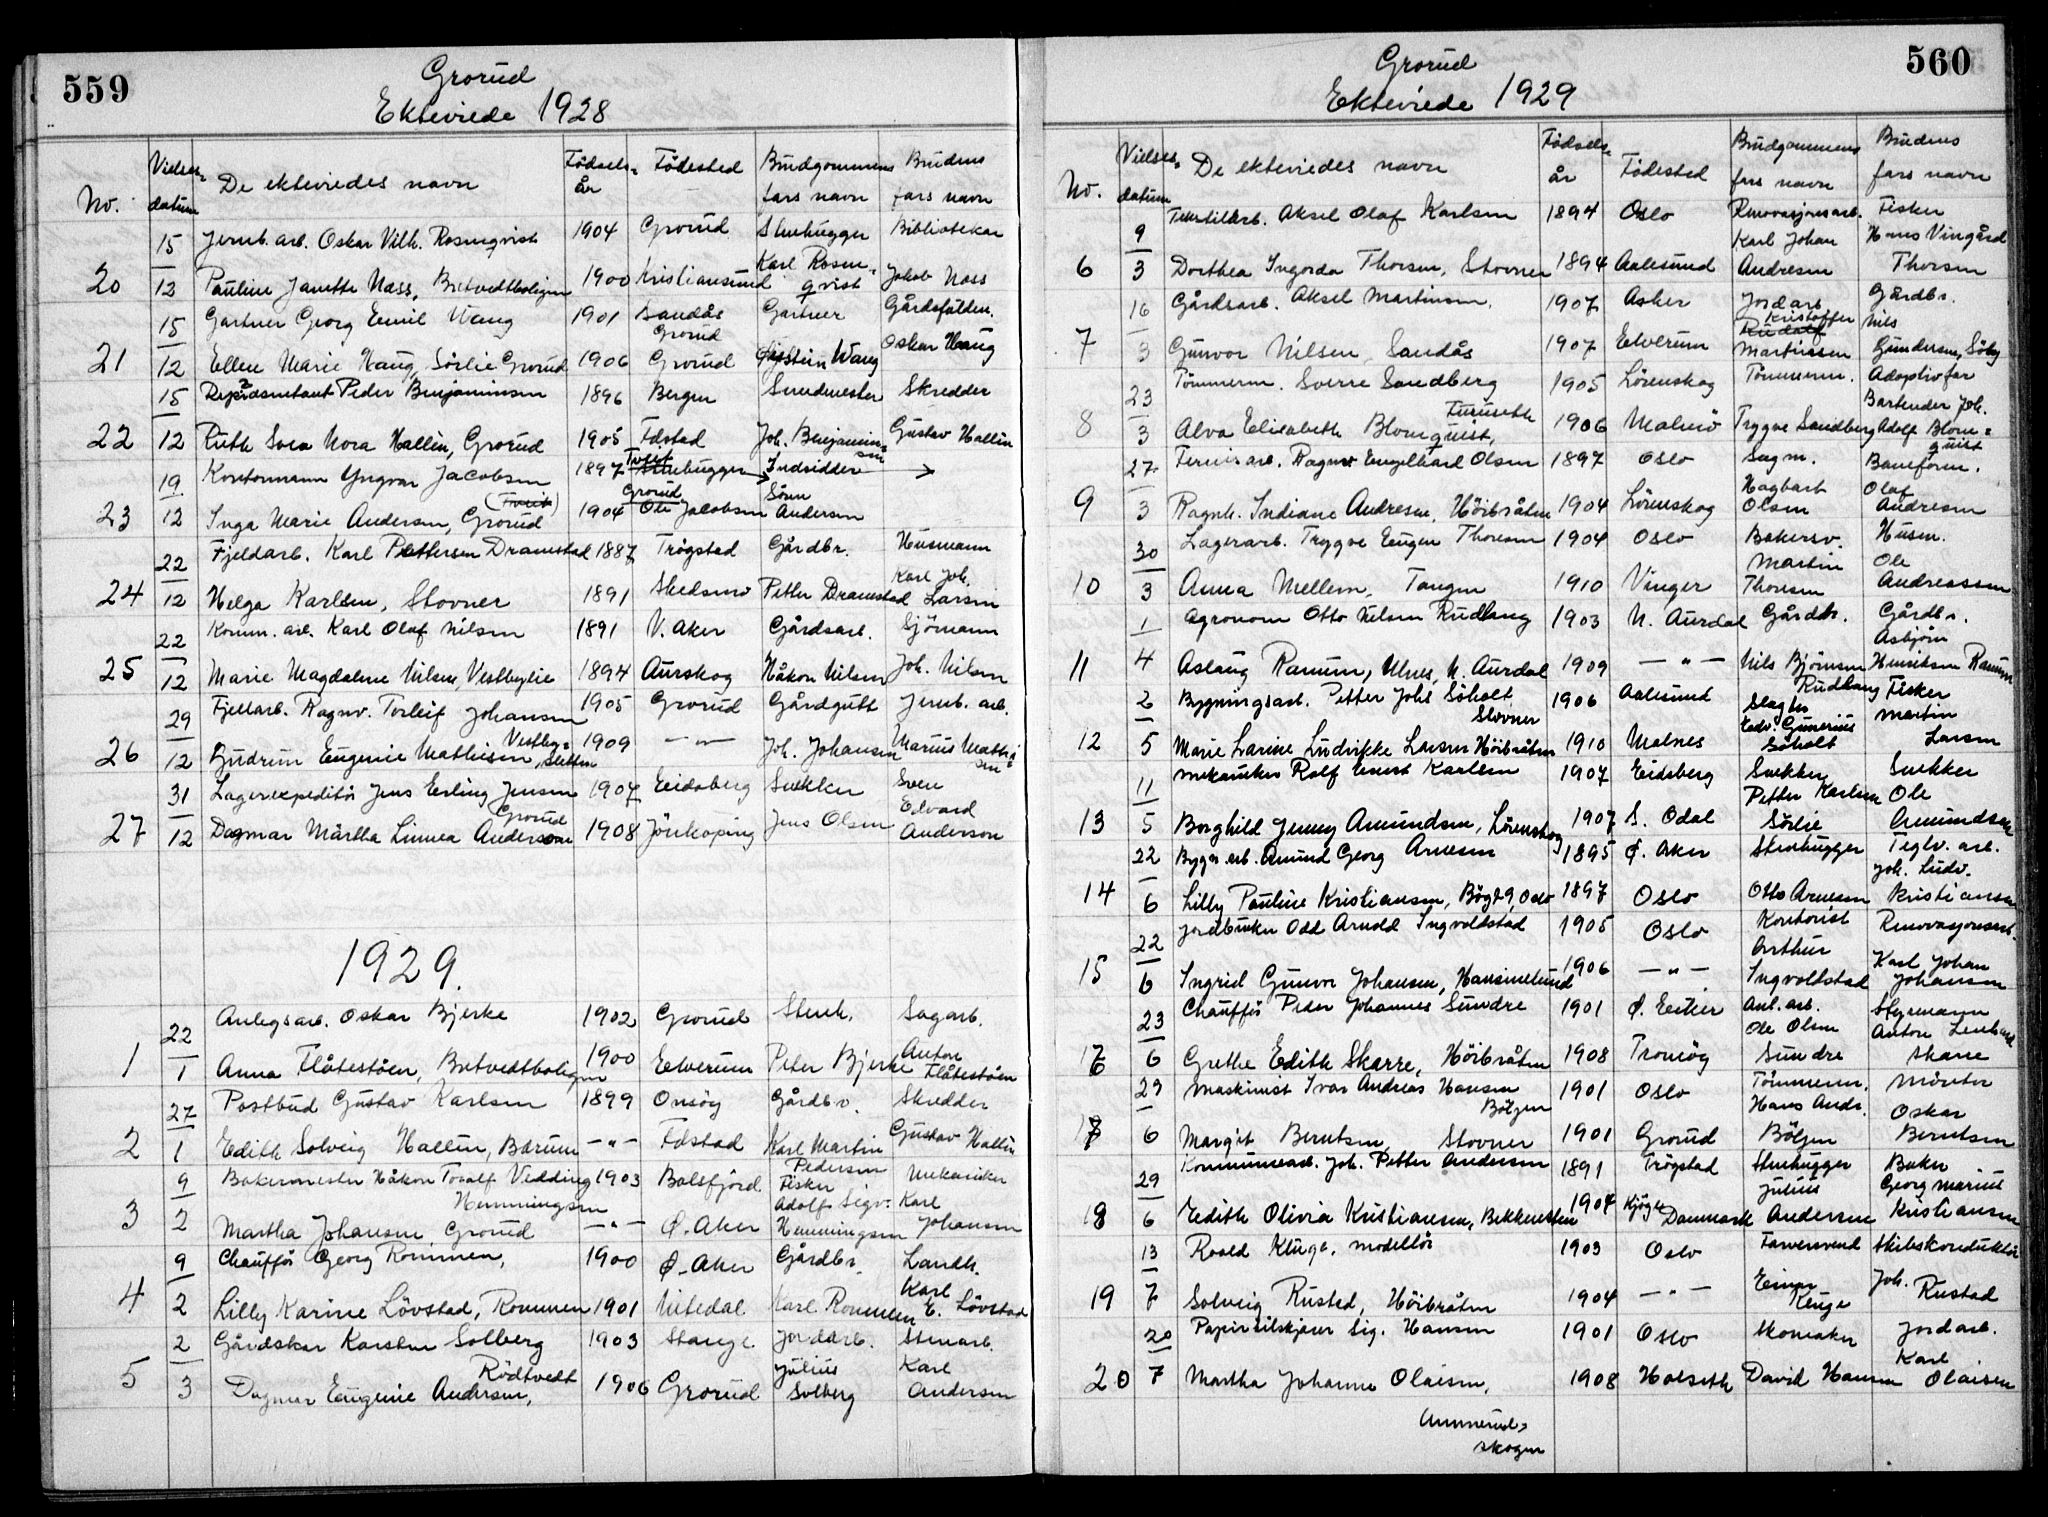 559
Grorud
Ektevïede 1928
No.
Vielses=
datum
De ektevïedes navn
Födsels=
år
Födested
Brudgommens
fars navn
Brudens
fars navn
15 Jernb. arb. Oskar Vilh. Rosenqvist 1904 Grorud Stenhugger Bibliotekar
20 12 Pauline Janette Næss, Bretvedtboligen 1900 Kristiansund Karl Rosen=qvist Jakob Næss
15 Gartner Georg Emil Wang 1901 Sandås Grorud Gartner Gårdsfulden.
21 12 Ellen Marie Haug, Sörlie Grorud 1906 Grorud Öistein Wang Oskar Haug
15 Peder Benjaminsen 1896 Bergen Smedmester Skredder
22 12 Ruth Svea Nora Hallin, Grorud 1905 Fdstad Joh. Benjamin=sen Gustav Hallin
19 Kontormann Yngvar Jacobsen 1897 Tveit Stenhugger Indsidder
23 12 Inga Marie Andersen, Grorud (Tveit) 1904 Grorud Ole Jacobsen Sören Andersen
22 Fjeldarb. Karl Pettersen Dramstad 1887 Trøgstad Gårdbr. Husmann
24 12 Helga Karlsen, Stovner 1891 Skedsmo Petter Dramstad Karl Joh. Larsen
22 Komm. arb. Karl Olaf Nilsen 1891 V. Aker Gårdsarb. Sjömann
25 12 Marie Magdalene Nilsen, Vestbylie 1894 Aurskog Håkon Nilsen Joh. Nilsen
29 Fjellarb. Ragnv. Torleif Johansen 1905 Grorud Gårdgutt Jernb. arb.
26 12 Gudrun Eugenie Mathisen, Vestby=sletten 1909 —"— Joh. Johansen Marius Mathi=sen
31 Lagerexpeditör Jens Erling Jensen 1907 Eidsberg Snekker Sven
27 12 Dagmar Märtha Linnea Anderson Grorud 1908 Jönköping Jens Olsen Edvard Anderson
1929.
22 Anlegsarb. Oskar Bjerke 1902 Grorud Stenh. Sagarb.
1 1 Anna Flåtestöen, Bretvedtboligen 1900 Elverum Peter Bjerke Anton Flåtestöen
27 Postbud Gustav Karlsen 1899 Onsöy Gårdbr. Skredder
2 1 Edith Solveig Hallin, Bærum —"— Fdstad Karl Martin Pedersen Gustav Hallin
9 Bakermester Håkon Toralf Vedding Henningsen 1903 Balsfjord Fisker Mekaniker
3 2 Martha Johansen, Grorud —"— Ø. Aker Adolf Sigv. Henningsen Karl Johansen
9 Chaufför Georg Rommen, 1900 Ø. Aker Gårdbr. Landh.
4 2 Lilly Karine Lövstad, Rommen 1901 Nitedal Karl Rommen Karl E. Lövstad
2 Gårdskar Karsten Solberg 1903 Stange Jordarb. Stenarb.
5 3 Dagmar Eugenie Andersen, Rödtvedt 1906 Grorud Julius Solberg Karl Andersen
560
Grorud
Ektevïede 1929
No.
Vielses=
datum
De ektevïedes navn
Födsels=
år
Födested
Brudgommens
fars navn
Brudens
fars navn
9 Tekstilarb. Aksel Olaf Karlsen 1894 Oslo Renovasjonsarb. Fisker
6 3 Dorthea Ingorda Thorsen, Stovner 1894 Aalesund Karl Johan Andresen Hans Vingård Thorsen
16 Gårdsarb. Aksel Martinsen. 1907 Asker Jordarb. Gårdbr.
7 3 Gunvor Nilsen, Sandås 1907 Elverum Kristoffer Rudolf Martinsen Nils Gundersen, Söby
23 Tömmerm. Sverre Sandberg 1905 Lörenskog Tömmerm. Adoptivfar
8 3 Alva Elisabeth Blomquist, Furuseth 1906 Malmö Trygve Sandberg Bartender Joh. Adolf Blom=quist
27 Fernisarb. Ragnv. Engelhard Olsen 1897 Oslo Sagm. Baneform.
9 3 Ragnh. Indiane Andresen, Höibråten 1904 Lörenskog Hagbart Olsen Olaf Andresen
30 Lagerarb. Trygve Eugen Thoresen 1904 Oslo Bakersv. Husm.
10 3 Anna Mellem, Tangen 1910 Vinger Martin Thoresen Ole Andreassen
1 Agronom Otto Nilsen Rudhang 1903 N. Aurdal Gårdbr. Gårdbr.
11 4 Aslaug Ranum, Ulnes, N. Aurdal 1909 —"— Nils Björnsen Rudhang Asbjörn Henriksen Ranum
2 Bygningsarb. Petter Johs Söholt Stovner 1906 Aalesund Slagter Fisker
12 5 Marie Larine Ludvikke Larsen Höibråten 1910 Malnes Edv. Gunerius Söholt Martin Larsen
11 Mekaniker Rolf Ernst Karlsen 1907 Eidsberg Snekker Snekker
13 5 Borghild Jenny Amundsen, Lörenskog 1907 S. Odal Petter Karlsen Sörlie Ole Amundsen
22 Bygn. arb. Amund Georg Arnesen 1895 Ø. Aker Stenhugger Teglv. arb.
14 6 Lilly Pauline Kristiansen, Bögt 9, Oslo 1897 Oslo Otto Arnesen Joh. Ludv. Kristiansen
22 Jordbruker Odd Arnold Ingvoldstad 1905 Oslo Kontorist Renovasjonsarb.
15 6 Ingrid Gunvor Johansen, Hansinelund 1906 —"— Arthur Ingvoldstad Karl Johan Johansen
23 Chaufför Peder Johannes Sundre 1901 Ø. Eeiker Anl. arb. Styrmann
16 6 Grethe Edith Skarre, Höibråten 1908 Tromöy Ole Olsen Sundre Anton Lenhard Skarre
29 Maskinist Ivar Andreas Hansen Böljen 1901 Oslo Tömmerm. Montör
17 6 Margit Berntsen, Stovner 1901 Grorud Hans Andr. Böljen Oskar Berntsen
29 Kommunearb. Joh. Petter Andersen 1891 Trøgstad Stenhugger Baker
18 6 Edith Olivia Kristiansen, Bekkensten 1904 Kjöge Danmark Julius Andersen Georg Marius Kristiansen
13 Roald Kluge, modellör 1903 Oslo Farversvend Skibskonduktör
19 7 Solveig Rustad, Höibråten 1904 —"— Einar Kluge Joh. Rustad
20 Papirtilskjærer Sig. Hansen 1901 Oslo Skomaker Jordarb.
20 7 Martha Johanne Olaisen, 1908 Holseth David Hansen Karl Olaisen
Ammerud=
skogen